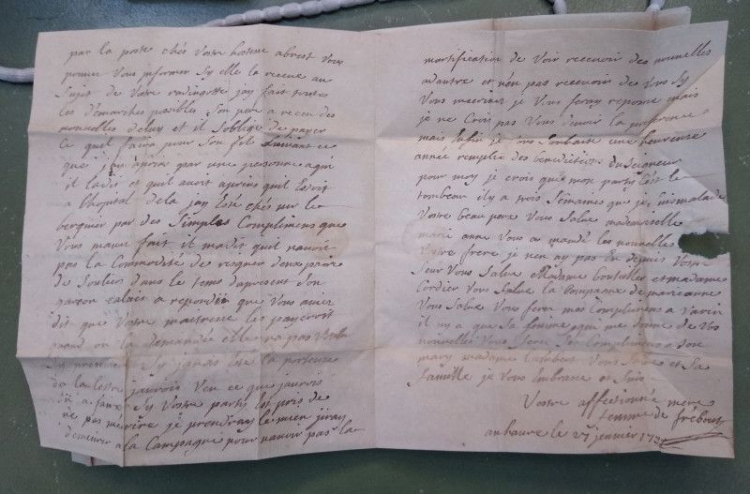 par la poste chés Votre hotesse abrest Vous
pouvez Vous informer Sy elle la receue au
Sujet de Votre redingotte jay fait toutes
les démarches posibles Son pere a recu des
nouvelles deluy et il Soblige de payer
ce quil faira pour Son fils
que jay apris par une personne aqui
il ladit et quil avoit apris quil Estoit
a lhopital dela jay Esté chés mr le
berquier par des Simples Complimens que
Vous mavez fait il madit quil navoit
pas la Commodité de deux paire
de Souliers dans le tems dapresent Son
garcon calais a repondu que Vous aviez
dit que Votre maitresse les payeroit
quand on la demandé elle na pas Voulu
Sy jy javais Esté la porteuse
de la lettre jaurois Veu ce que jaurois
du a faire Sy Votre party Est pris de
ne pas je prendray le mien jiray
demeurer a la Campagne pour navoir pas la
mortification de Voir recevoir des nouvelles
adautre et non pas recevoir de Vous Sy
Vous mecrivez je Vous feray reponse mais
je ne Crois pas Vous donner la preference
mais Enfin je Vous Souhaite une heureuse
année remplie des benedictions du Seigneur
pour moy je crois que mon partis Est le
tombeau il y a trois Semaines que je Suis malade
Votre beau pere Vous Salue mademoiselle
marie anne Vous a mandé les nouvelles
Votre frere je nen ay pas Eu depuis Votre
Seur Vous Salue Madame et madame
Cordier Vous Salue la Compagne de marianne
Vous Salue Vous ferez mes Complimens a Varin
il ny a que Sa femme qui me donne de Vos
nouvelles Vous ferez Ses Complimens a Son
mary madame Vous Salue et Sa
famille je Vous Embrasse et Suis
Votre affectionné mere
femme de frebourg
au havre le 27 jenvier 17